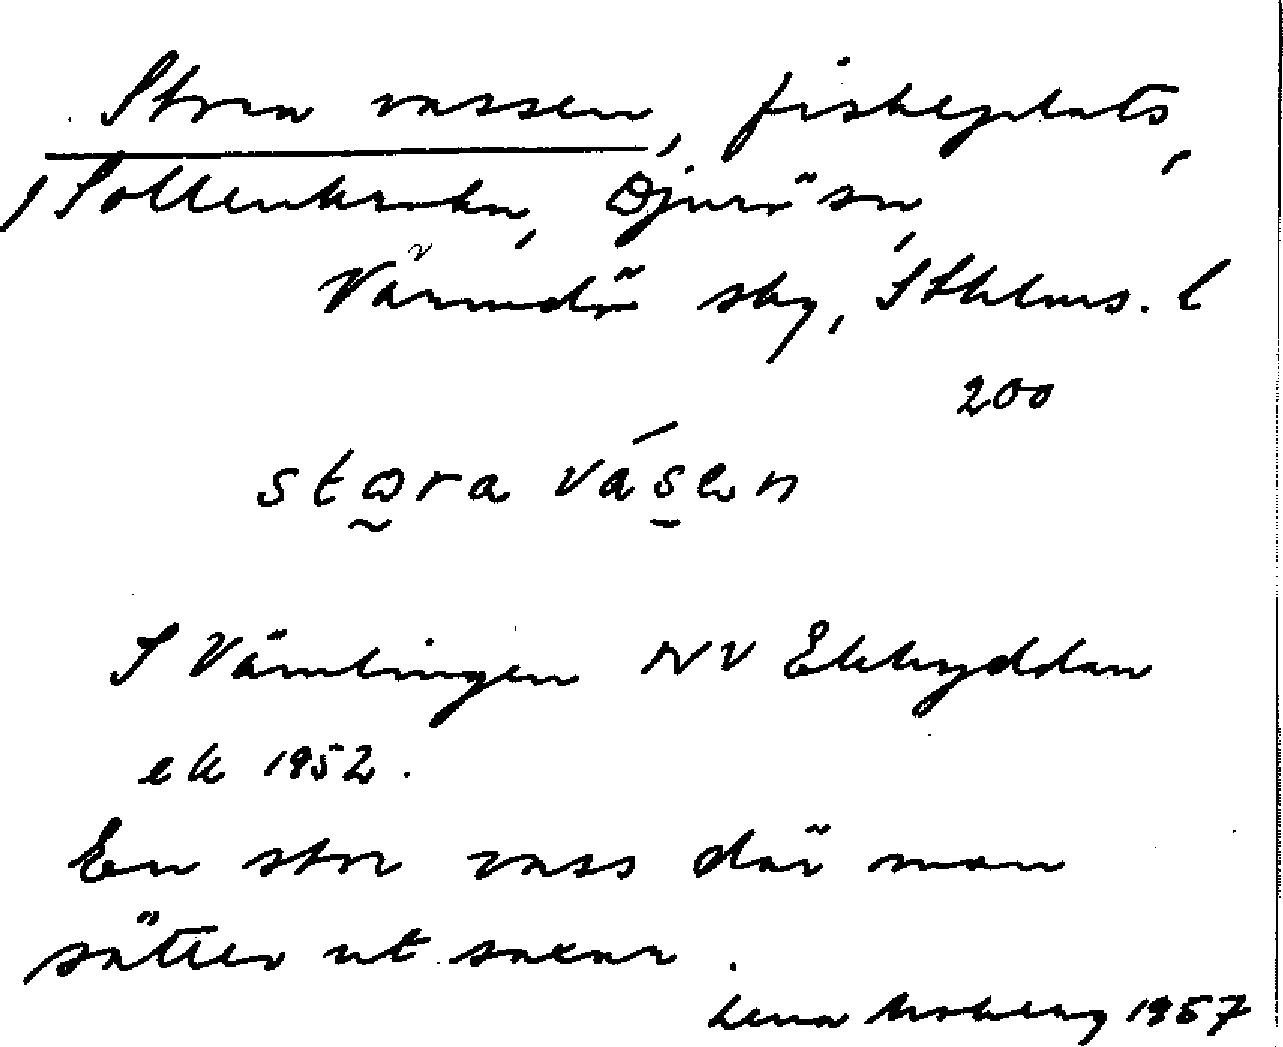 Stora vassen, fiskeplats,
Sollenkroka, Djurö sn,
Värmdö skg, Sthlms. l
200
stora vásen
S Vämlingen NV Ekhyddan
ek 1952.
En stor vass där man
sätter ut saxar.
Lena Moberg 1957